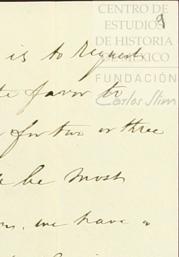 CENTRO DE
ESTUDIOS
DE HISTORIA
DE MÉXICO
FUNDACIÓN
Carlos Slim
9
is to request
favor to
for two or three
be most
we have a